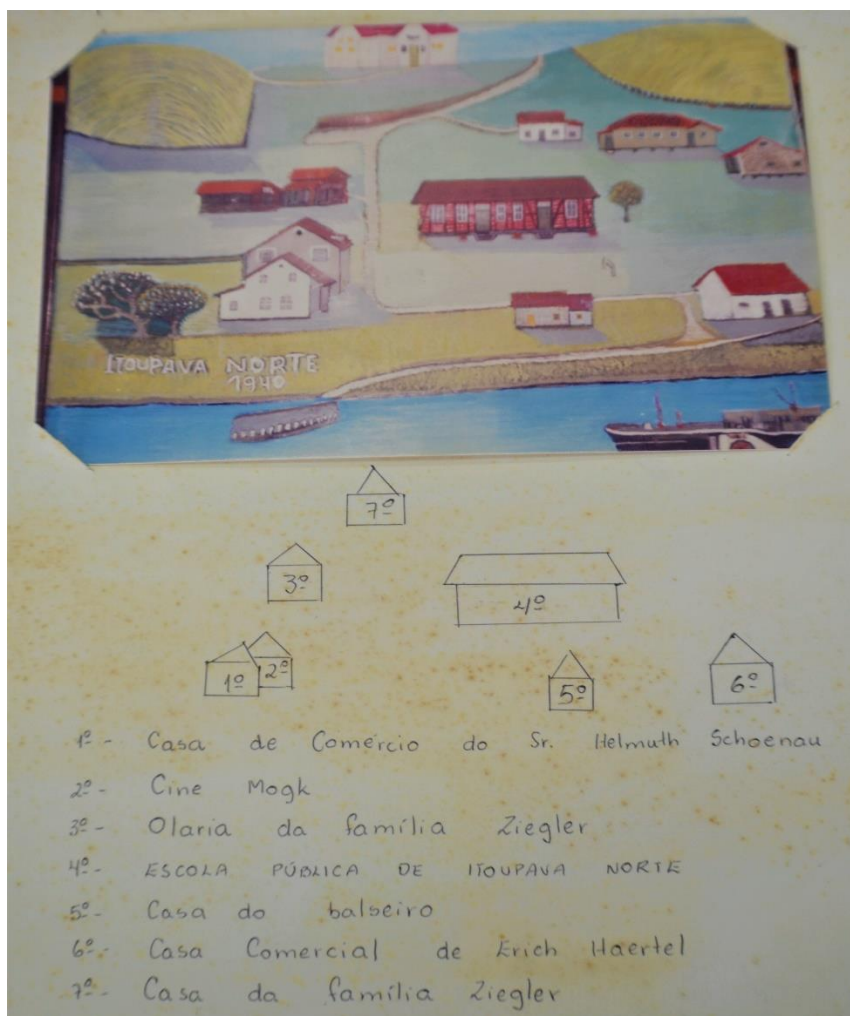 ITOUPAVA NORTE
1940
7º
3º
4º
1º 2º
5º
6º
1º - Casa de Comércio do Sr. Helmuth Schoenau
2º - Cine Mogk
3º - Olaria da família Ziegler
4º - ESCOLA PÚBLICA DE ITOUPAVA NORTE
5º - Casa do balseiro
6º - Casa Comercial de Erich Haertel
7º - Casa da família Ziegler